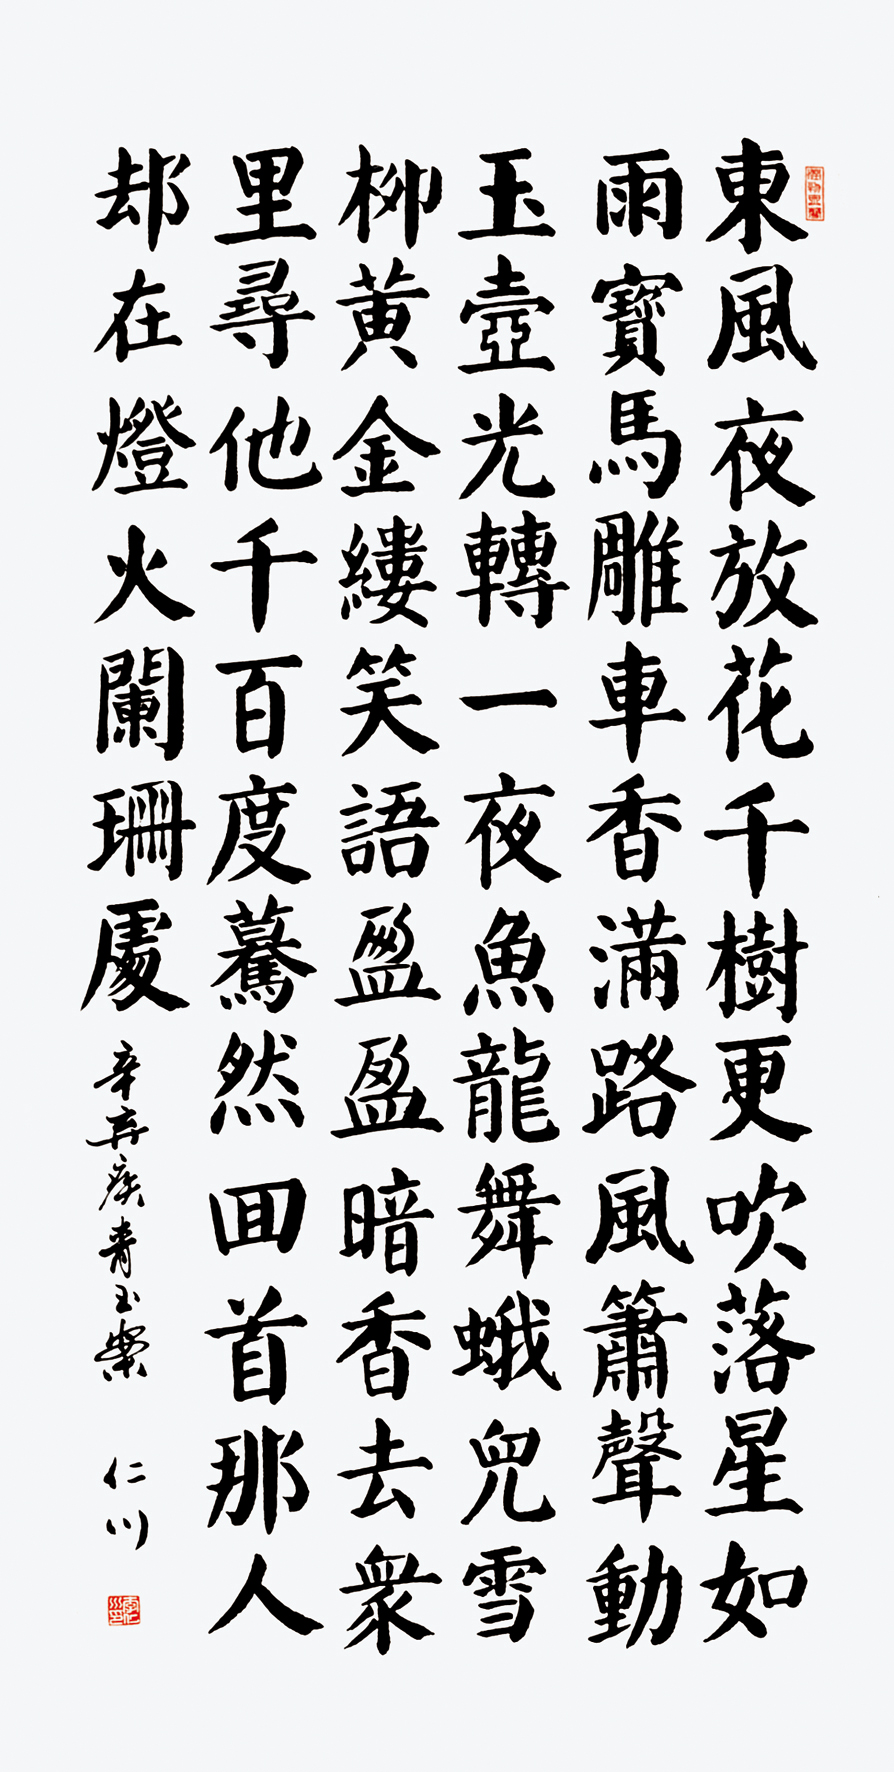 東風夜放花千樹更吹落星如
雨寶馬雕車香滿路風簫聲動
玉壺光轉一夜魚龍舞蛾兒雪
柳黄金縷笑語盈盈暗香去衆
里尋他千百度驀然回首那人
却在燈火闌珊處
辛弃疾青玉案 仁川